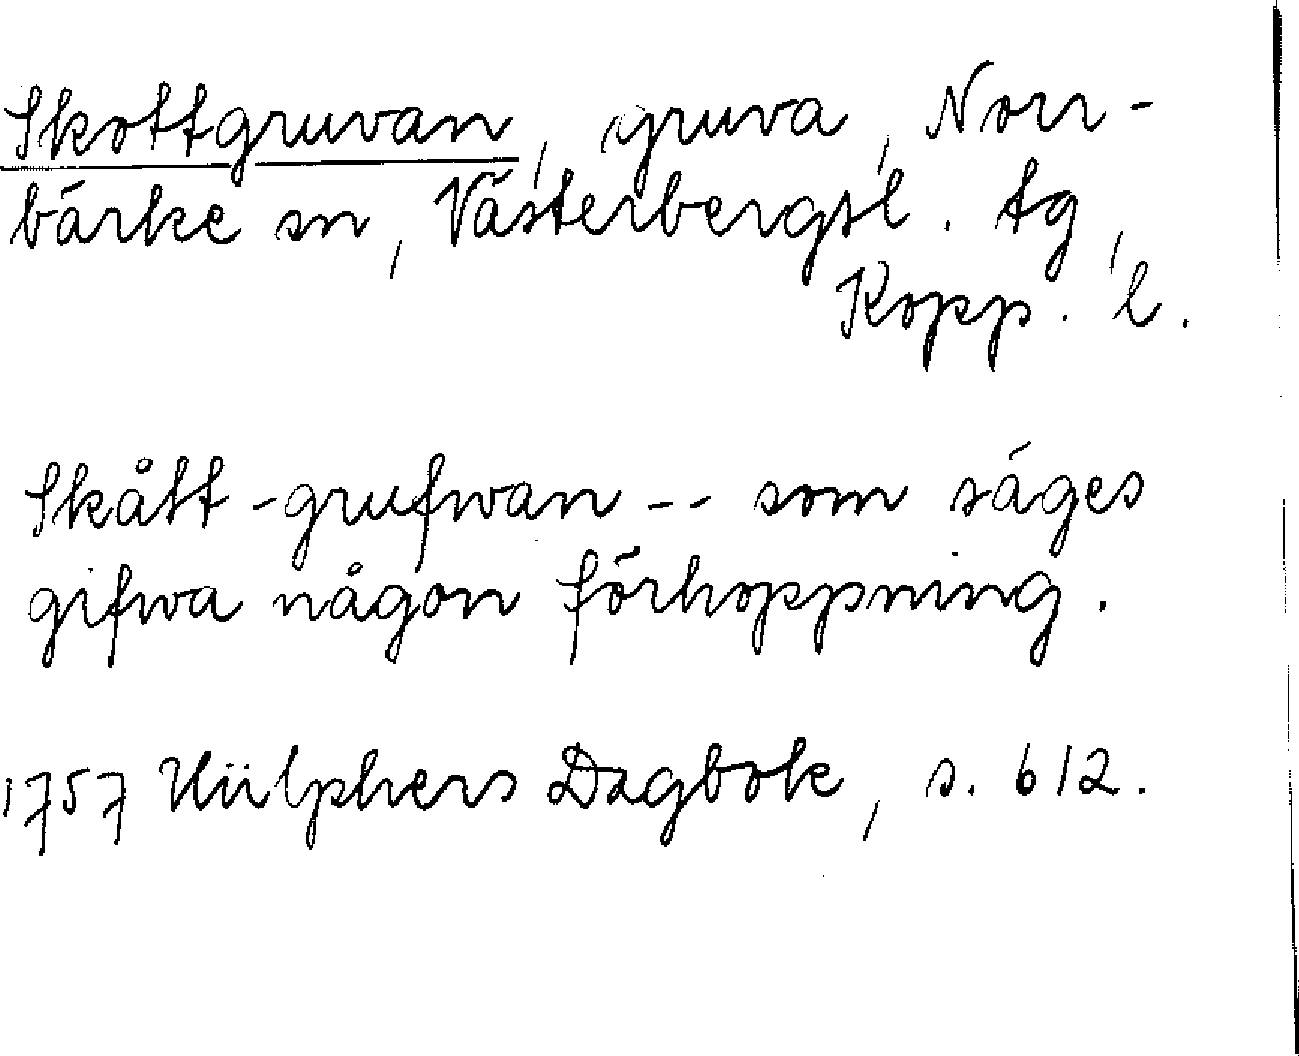 Skottgruvan, gruva, Norr-
bärke sn, Västerbergsl. tg,
Kopp. l.
Skått-grufwan -- som säges
gifwa någon förhoppning.
1757 Hülphers Dagbok, s. 612.